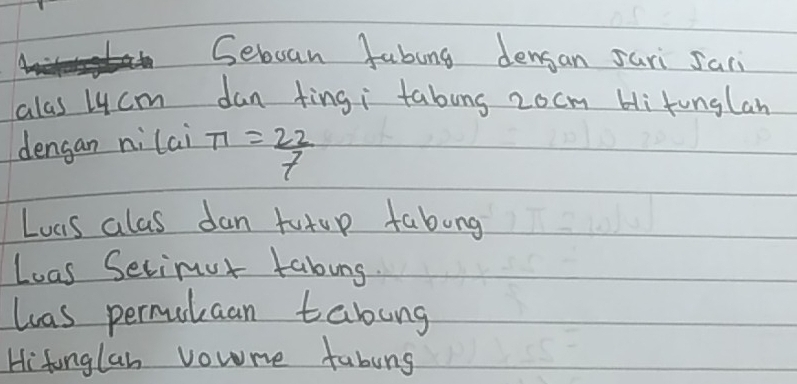 Sebuah tabung dengan jari jari
alas 14 cm dan tingi tabung 20cm Hitunglah
dengan nilai π = 22/7
Luas alas dan tutup tabung
Luas Selimut tabung.
luas permukaan tabung
Hitunglah volume tabung